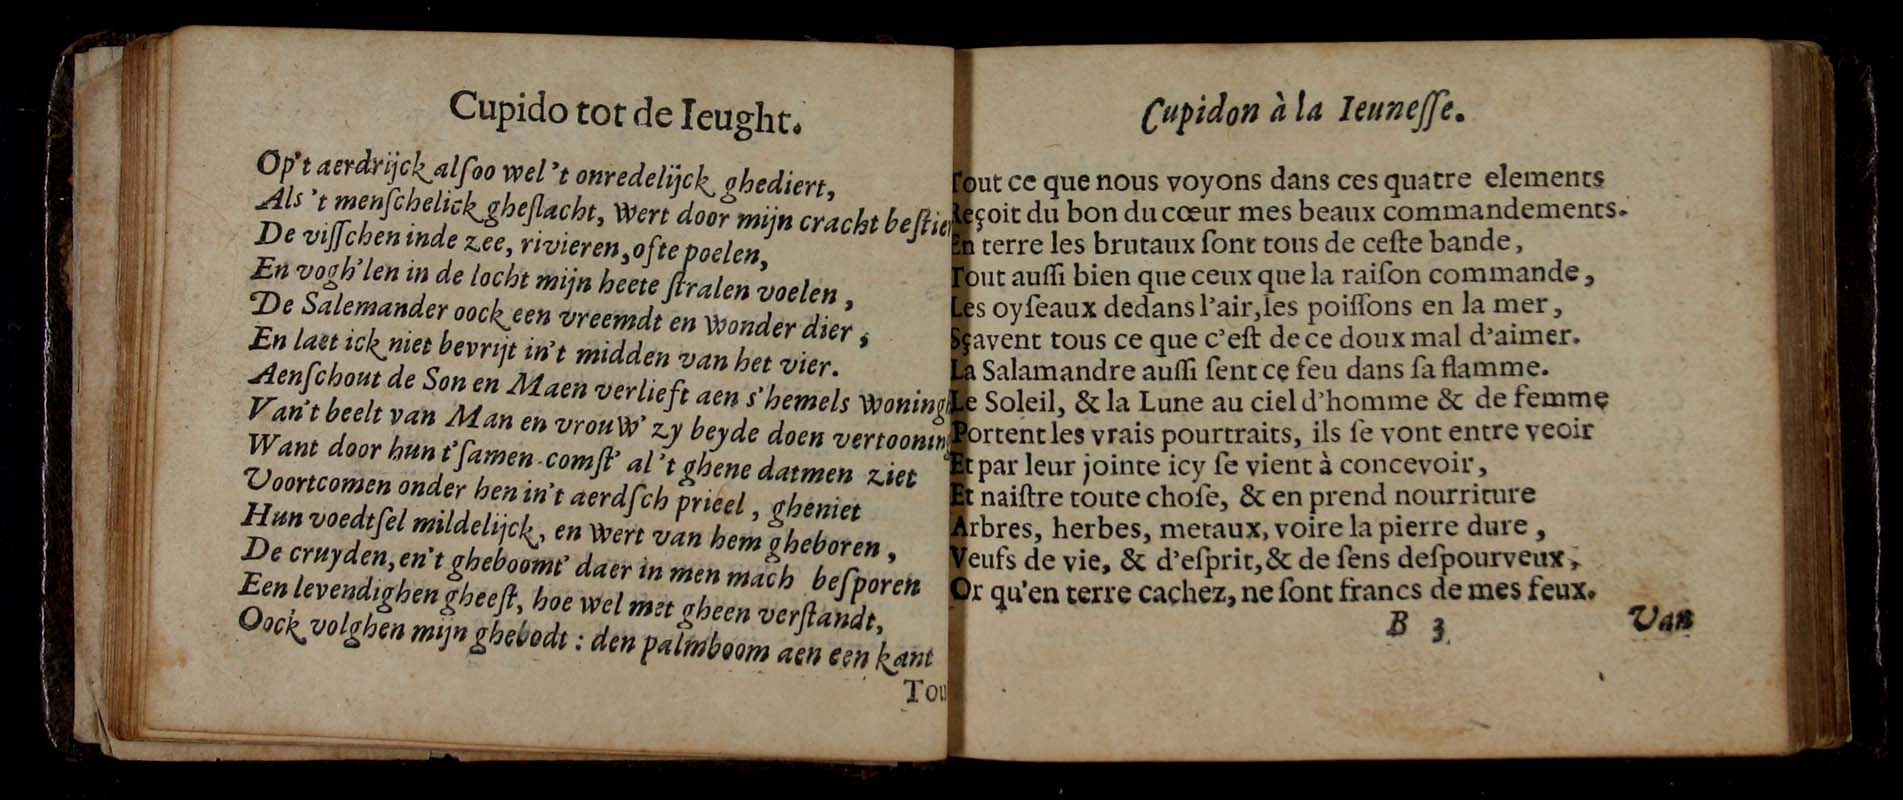 Cupido tot de Ieught.
Op't aerdrijck alſoo wel 't onredelijck ghediert,
Als 't menſchelick gheſlacht, wert door mijn cracht beſtier
De viſſchen inde zee, rivieren, ofte poelen,
En vogh'len in de locht mijn heete ſtralen voelen,
De Salemander oock een vreemdt en wonder dier,
En laet ick niet bevrijt in't midden van het vier.
Aenſchout de Son en Maen verlieft aen s'hemels woningh
Van't beelt van Man en vrouw' zy beyde doen vertooning
Want door hun t'ſamen-comſt' al 't ghene datmen ziet
Voortcomen onder hen in't aerdſch prieel, gheniet
Hun voedtſel mildelijck, en wert van hem gheboren,
De cruyden, en't gheboomt' daer in men mach beſporen
Een levendighen gheeſt, hoe wel met gheen verſtandt,
Oock volghen mijn ghebodt: den palmboom aen een kant
Tou
Cupidon à la Ieuneſſe.
Tout ce que nous voyons dans ces quatre elements
Reçoit du bon du cœur mes beaux commandements.
En terre les brutaux ſont tous de ceſte bande,
Tout auſſi bien que ceux que la raiſon commande,
Les oyſeaux dedans l'air, les poiſſons en la mer,
Sçavent tous ce que c'eſt de ce doux mal d'aimer.
La Salamandre auſſi ſent ce feu dans ſa flamme.
Le Soleil, & la Lune au ciel d'homme & de femme
Portent les vrais pourtraits, ils ſe vont entre veoir
Et par leur jointe icy ſe vient à concevoir,
Et naiſtre toute choſe, & en prend nourriture
Arbres, herbes, metaux, voire la pierre dure,
Veufs de vie, & d'eſprit, & de ſens deſpourveux,
Or qu'en terre cachez, ne ſont francs de mes feux.
B 3
Van